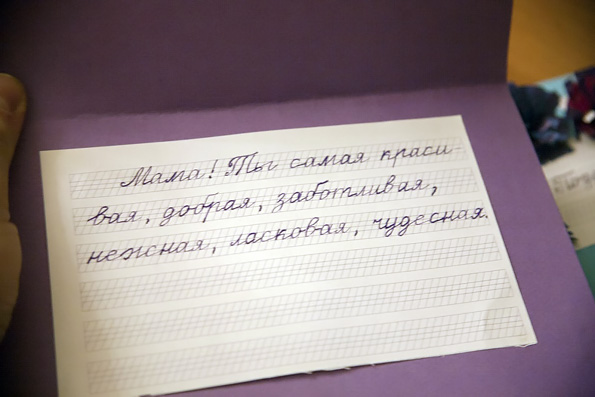 Мама! Ты самая краси-
вая, добрая, заботливая,
нежная, ласковая, чудесная.